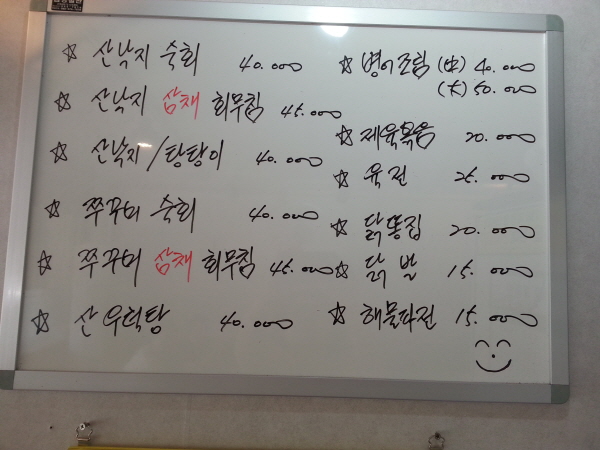 ☆ 산낙지 숙회 40.000
☆ 산낙지 삼채 회무침 45.000
☆ 산낙지/탕탕이 40.000
☆ 쭈꾸미 숙회 40.000
☆ 쭈꾸미 삼채 회무침 45.000
☆ 산 우럭탕 40.000
☆ 병어조림 (中) 40.000
(大) 50.000
☆ 제육볶음 20.000
☆ 육전 25.000
☆ 닭똥집 20.000
☆ 닭발 15.000
☆ 해물파전 15.000